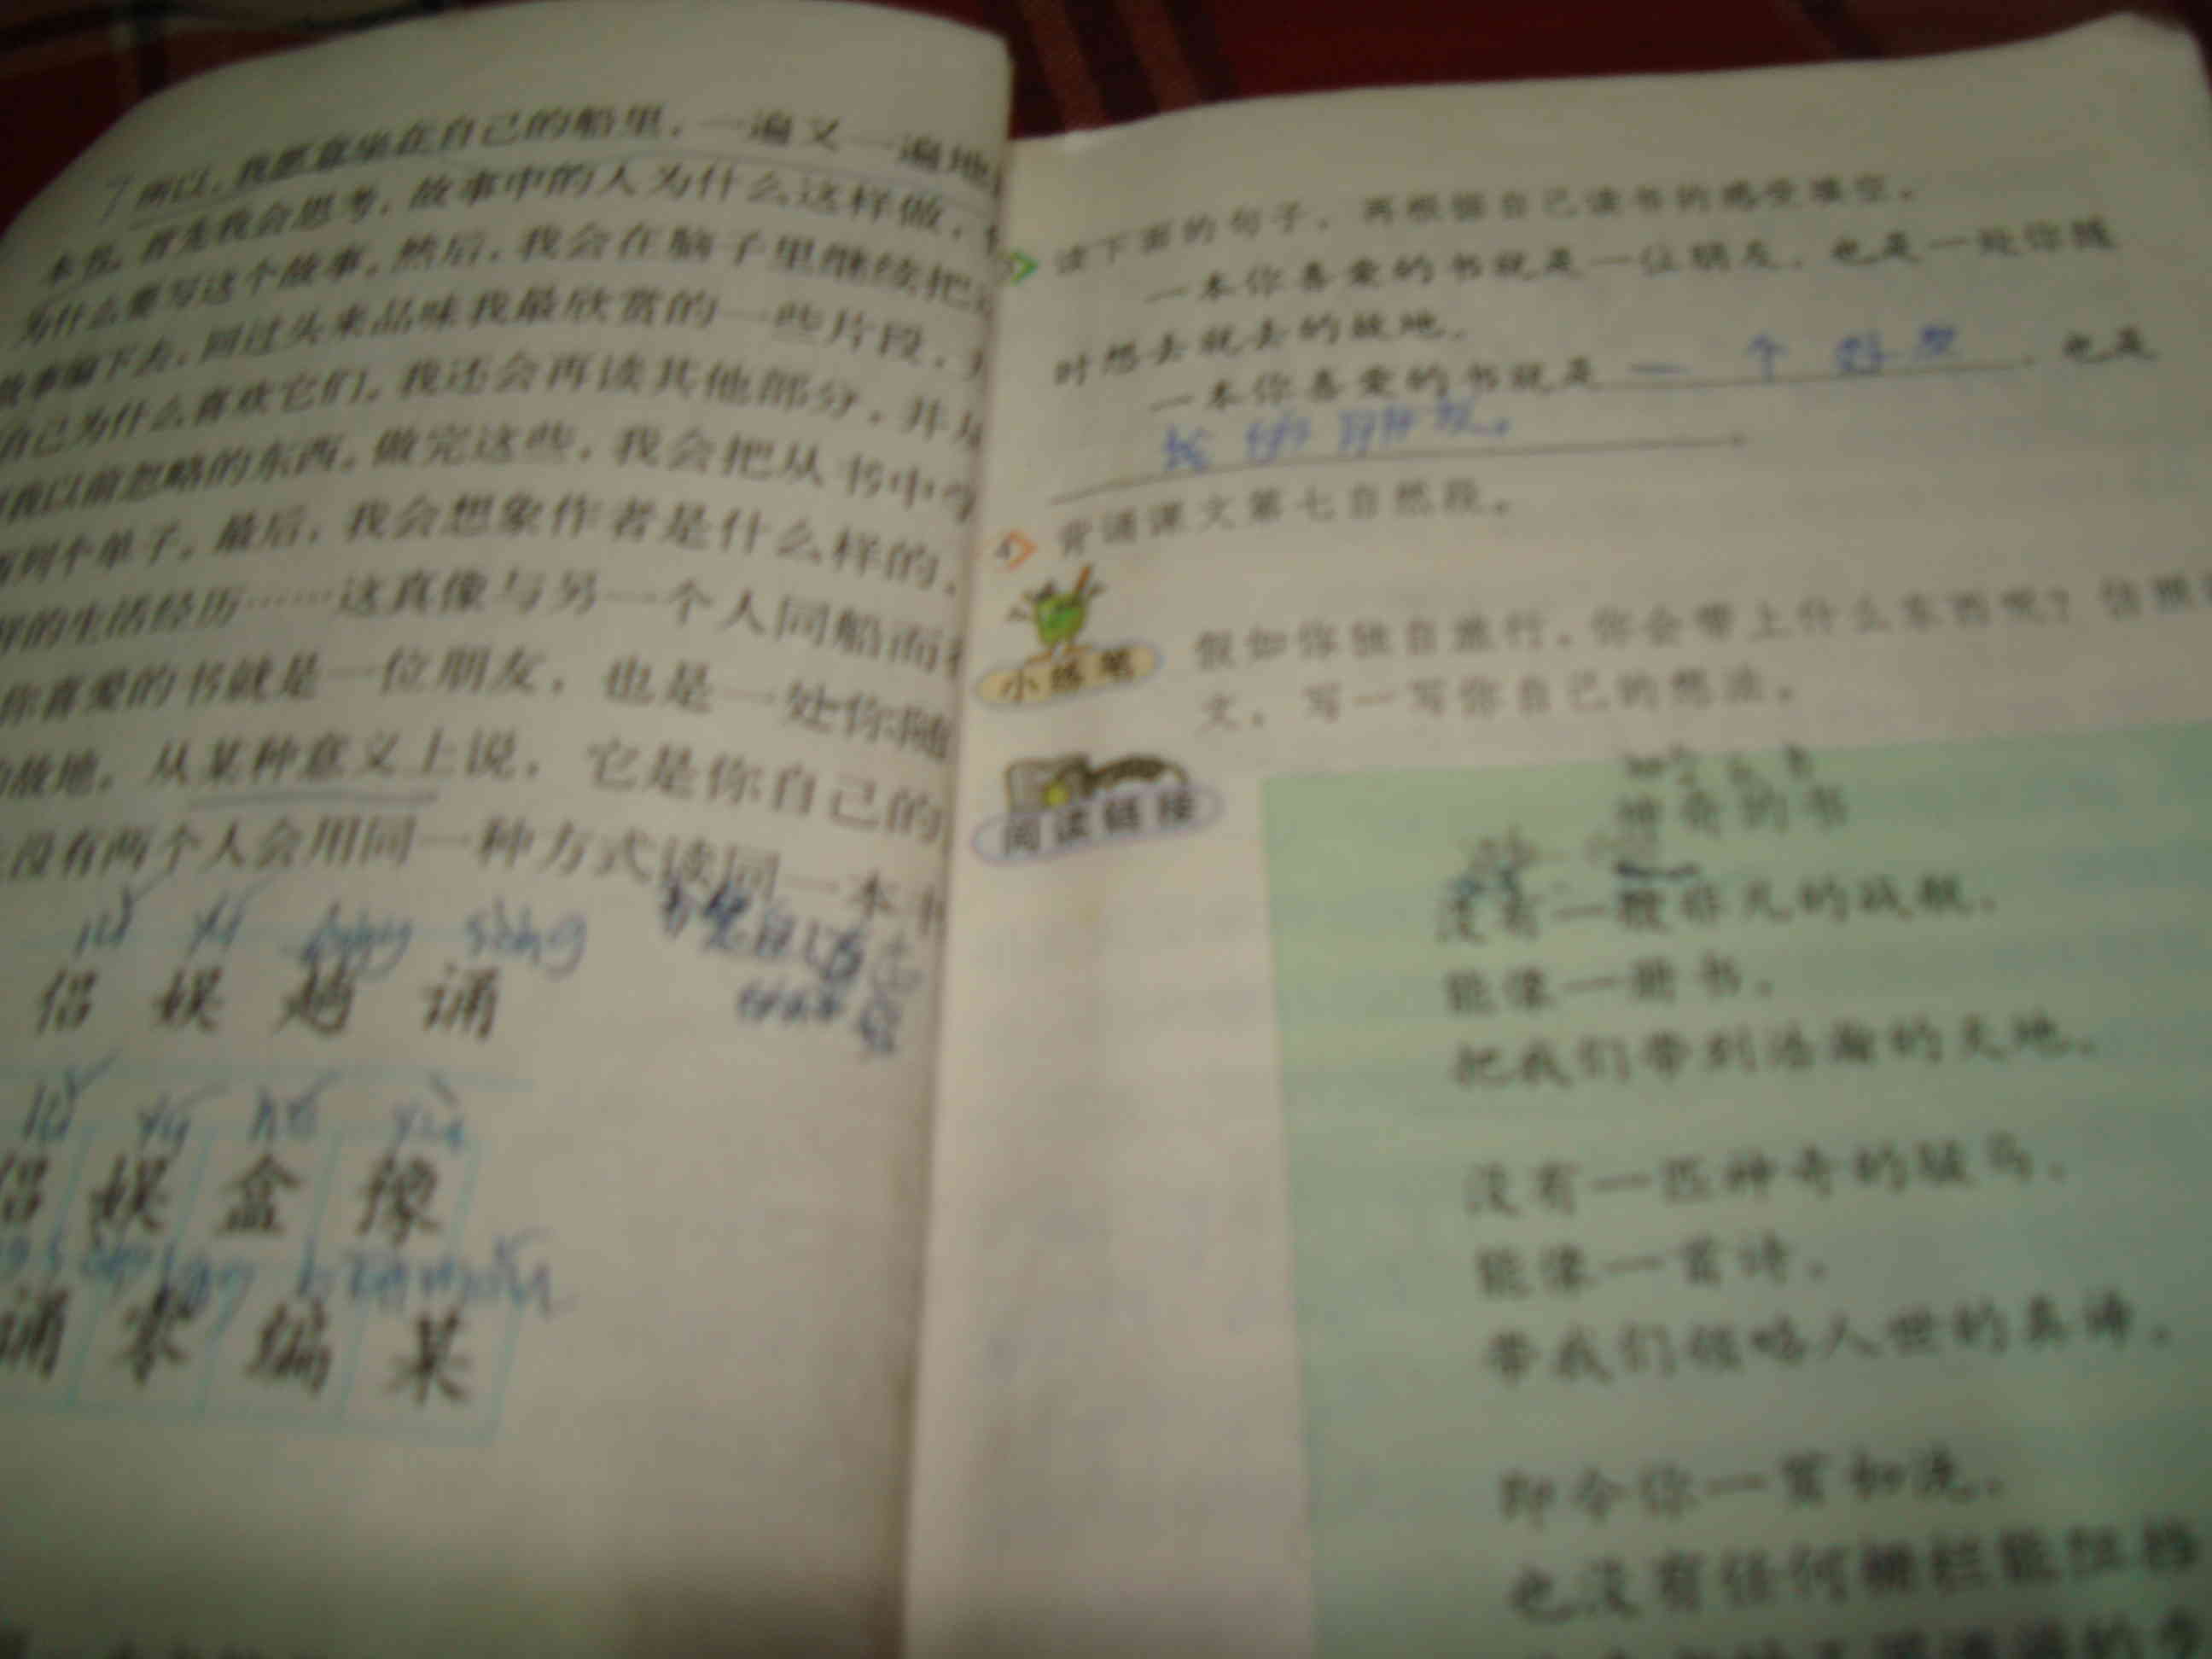 7 所以，我愿意坐在自己的船里，一遍又一遍地
本书。首先我会思考，故事中的人为什么这样做，
为什么要写这个故事。然后，我会在脑子里继续把
故事编下去，回过头来品味我最欣赏的一些片段，
自己为什么喜欢它们。我还会再读其他部分，并从
我以前忽略的东西。做完这些，我会把从书中学
列个单子。最后，我会想象作者是什么样的，
样的生活经历……这真像与另一个人同船而
你喜爱的书就是一位朋友，也是一处你随
故地。从某种意义上说，它是你自己的
没有两个人会用同一种方式读同一本书
lǚ yú tàng sòng
侣 娱 趟 诵
lǚ yú hé yù
侣 娱 盒 豫
诵 零 编 某
读下面的句子，再根据自己读书的感受填空。
一本你喜爱的书就是一位朋友，也是一处你随
时想去就去的故地。
一本你喜爱的书就是 一个好 ，也是
的朋友。
4 背诵课文第七自然段。
小练笔
假如你独自旅行，你会带上什么东西呢？仿照
文，写一写你自己的想法。
阅读链接
神奇的书
没有一艘非凡的战舰，
能像一册书，
把我们带到浩瀚的天地。
没有一匹神奇的骏马，
能像一首诗，
带我们领略人世的真谛。
即令你一贫如洗，
也没有任何栅栏能阻挡